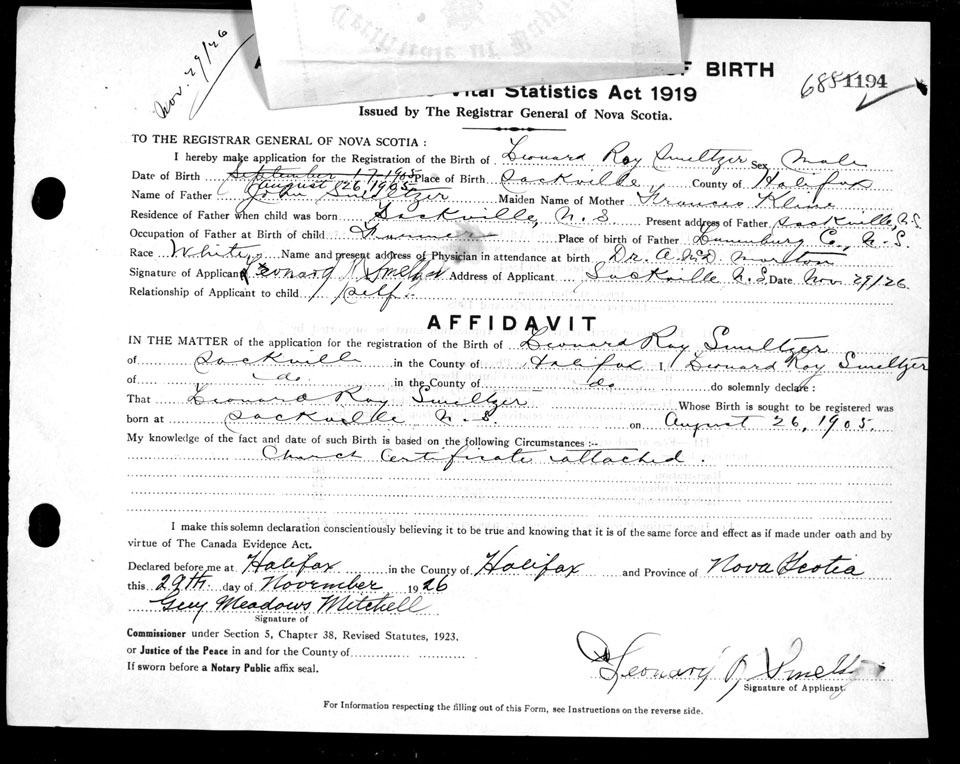 Nov. 29/26
OF BIRTH
Vital Statistics Act 1919
6881194
Issued by The Registrar General of Nova Scotia.
TO THE REGISTRAR GENERAL OF NOVA SCOTIA :
I hereby make application for the Registration of the Birth of Leonard Roy Smeltzer Sex Male
Date of Birth September 17 1905 Place of Birth Sackville County of Halifax
August 26, 1905
Name of Father John Smeltzer Maiden Name of Mother Frances Kline
Residence of Father when child was born Sackville, N. S Present address of Father Sackville, N.S.
Occupation of Father at Birth of child Farmer Place of birth of Father Lunenburg Co., N. S.
Race White Name and present address of Physician in attendance at birth Dr. A. McD. Morton
Signature of Applicant Leonard R Smeltzer Address of Applicant Sackville N.S. Date Nov 29/26
Relationship of Applicant to child Self.
AFFIDAVIT
IN THE MATTER of the application for the registration of the Birth of Leonard Roy Smeltzer
of Sackville in the County of Halifax I, Leonard Roy Smeltzer
of do in the County of do do solemnly declare :
That Leonard Roy Smeltzer Whose Birth is sought to be registered was
born at Sackville N. S. on August 26, 1905.
My knowledge of the fact and date of such Birth is based on the following Circumstances :--
Church Certificate attached.
I make this solemn declaration conscientiously believing it to be true and knowing that it is of the same force and effect as if made under oath and by
virtue of The Canada Evidence Act.
Declared before me at Halifax in the County of Halifax and Province of Nova Scotia
this 29th day of November 1926
Guy Meadows Mitchell
Signature of
Commissioner under Section 5, Chapter 38, Revised Statutes, 1923,
or Justice of the Peace in and for the County of
If sworn before a Notary Public affix seal.
Leonard R Smeltz
Signature of Applicant.
For Information respecting the filling out of this Form, see Instructions on the reverse side.